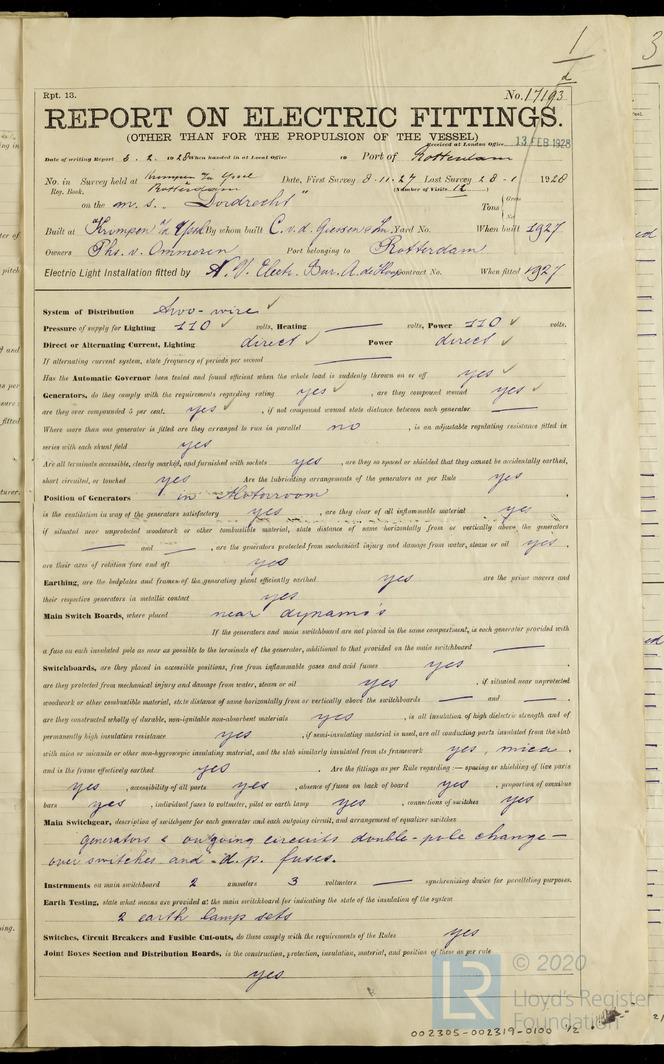 1
d
3
Rpt. 13.
No. 17193.
REPORT ON ELECTRIC FITTINGS.
(OTHER THAN FOR THE PROPULSION OF THE VESSEL)
Received at London Office 13 FEB 1928
Date of writing Report 8. 2. 1928 When handed in at Local Office 19 Port of Rotterdam
No. in Survey held at Krimpen a/d Yssel Date, First Survey 8-11-27 Last Survey 28-1 1928
Reg. Book. Rotterdam (Number of Visits 12)
on the m.s. "Dordrecht" Tons { Gross Net
Built at Krimpen a/d Yssel By whom built C. v. d. Giessen & Zn. Yard No. When built 1927
Owners Phs. v. Ommeren Port belonging to Rotterdam
Electric Light Installation fitted by N.V. Electr. Bur. A. de Hoop Contract No. When fitted 1927
System of Distribution two-wire
Pressure of supply for Lighting 110 volts, Heating — volts, Power 110 volts.
Direct or Alternating Current, Lighting direct Power direct
If alternating current system, state frequency of periods per second —
Has the Automatic Governor been tested and found efficient when the whole load is suddenly thrown on or off yes
Generators, do they comply with the requirements regarding rating yes, are they compound wound yes
are they over compounded 5 per cent. yes, if not compound wound state distance between each generator —
Where more than one generator is fitted are they arranged to run in parallel no, is an adjustable regulating resistance fitted in
series with each shunt field yes
Are all terminals accessible, clearly marked, and furnished with sockets yes, are they so spaced or shielded that they cannot be accidentally earthed,
short circuited, or touched yes Are the lubricating arrangements of the generators as per Rule yes
Position of Generators in Motorroom
is the ventilation in way of the generators satisfactory yes, are they clear of all inflammable material yes
if situated near unprotected woodwork or other combustible material, state distance of same horizontally from or vertically above the generators
— and —, are the generators protected from mechanical injury and damage from water, steam or oil yes.
are their axes of rotation fore and aft yes
Earthing, are the bedplates and frames of the generating plant efficiently earthed yes are the prime movers and
their respective generators in metallic contact yes
Main Switch Boards, where placed near dynamo's
If the generators and main switchboard are not placed in the same compartment, is each generator provided with
a fuse on each insulated pole as near as possible to the terminals of the generator, additional to that provided on the main switchboard —
Switchboards, are they placed in accessible positions, free from inflammable gases and acid fumes yes.
are they protected from mechanical injury and damage from water, steam or oil yes, if situated near unprotected
woodwork or other combustible material, state distance of same horizontally from or vertically above the switchboards — and —.
are they constructed wholly of durable, non-ignitable non-absorbent materials yes, is all insulation of high dielectric strength and of
permanently high insulation resistance yes, if semi-insulating material is used, are all conducting parts insulated from the slab
with mica or micanite or other non-hygroscopic insulating material, and the slab similarly insulated from its framework yes, mica.
and is the frame effectively earthed yes. Are the fittings as per Rule regarding:— spacing or shielding of live parts
yes, accessibility of all parts yes, absence of fuses on back of board yes, proportion of omnibus
bars yes, individual fuses to voltmeter, pilot or earth lamp yes, connections of switches yes
Main Switchgear, description of switchgear for each generator and each outgoing circuit, and arrangement of equalizer switches
generators & outgoing circuits double-pole change-
over switches and d.p. fuses.
Instruments on main switchboard 2 ammeters 3 voltmeters — synchronizing device for paralleling purposes.
Earth Testing, state what means are provided at the main switchboard for indicating the state of the insulation of the system
2 earth lamp sets
Switches, Circuit Breakers and Fusible Cut-outs, do these comply with the requirements of the Rules yes
Joint Boxes Section and Distribution Boards, is the construction, protection, insulation, material, and position of these as per rule
yes
LR © 2020
Lloyd's Register
Foundation
002305-002319-0100 1/2